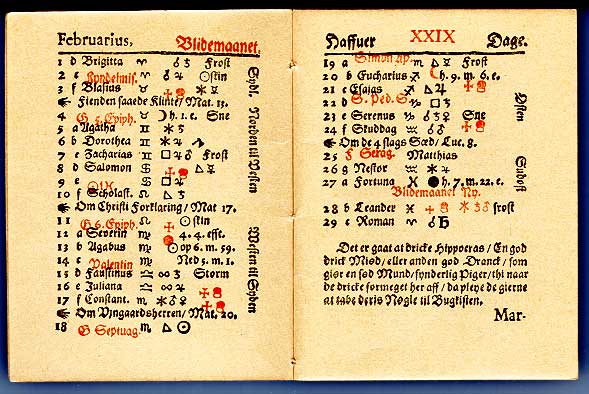 Februarius, Blidemaanet.
1 d Brigitta ♈ ☌ ♂ Frost
2 e Kyndelmis. ♈ ☉stin
3 f Blasius ♉
Fienden saaede Klinte / Mat. 13.
4 G 5. Epiph. ♉ h. 1. e. Sne
5 a Agatha ♊
6 b Dorothea ♊
7 c Zacharias ♋ Frost
8 d Salomon ♋
9 e
10 f Scholast. ♌
Om Christi Forklaring / Mat 17.
11 G 6. Epiph. ♌ ☉stin
12 a Severin ♍ 4. 4. efft.
13 b Agabus ♍ ☉op 6. m. 59.
14 c Valentin Ned 5. m. 1.
15 d Faustinus ♎ Storm
16 e Juliana ♎
17 f Constant. ♏
Om Vijngaardsherren / Mat. 20.
18 G Septuag. ♏
Sydv. Norden til Vesten
Vesten til Synden
Haffuer XXIX Dage.
19 a Simon ap. ♏ Frost
20 b Eucharius h. 9. m. 6. e.
21 c Esaias
22 d S. Ped. S.
23 e Serenus Sne
24 f Skuddag
Om de 4 slags Sæd / Luc. 8.
25 f Sexag. Matthias
26 g Nestor
27 a Fortuna h. 7. m. 22. e.
Blidemaanet Ny.
28 b Leander frost
29 c Roman
Østen
Sudvest
Det er gaat at dricke Hippocras / En god
drick Miød / eller anden god Dranck / som
giør en sød Mund / synderlig Piger / thi naar
de dricke formeget her aff / da pleye de gierne
at tabe deris Nøgle til Bugkisten.
Mar-